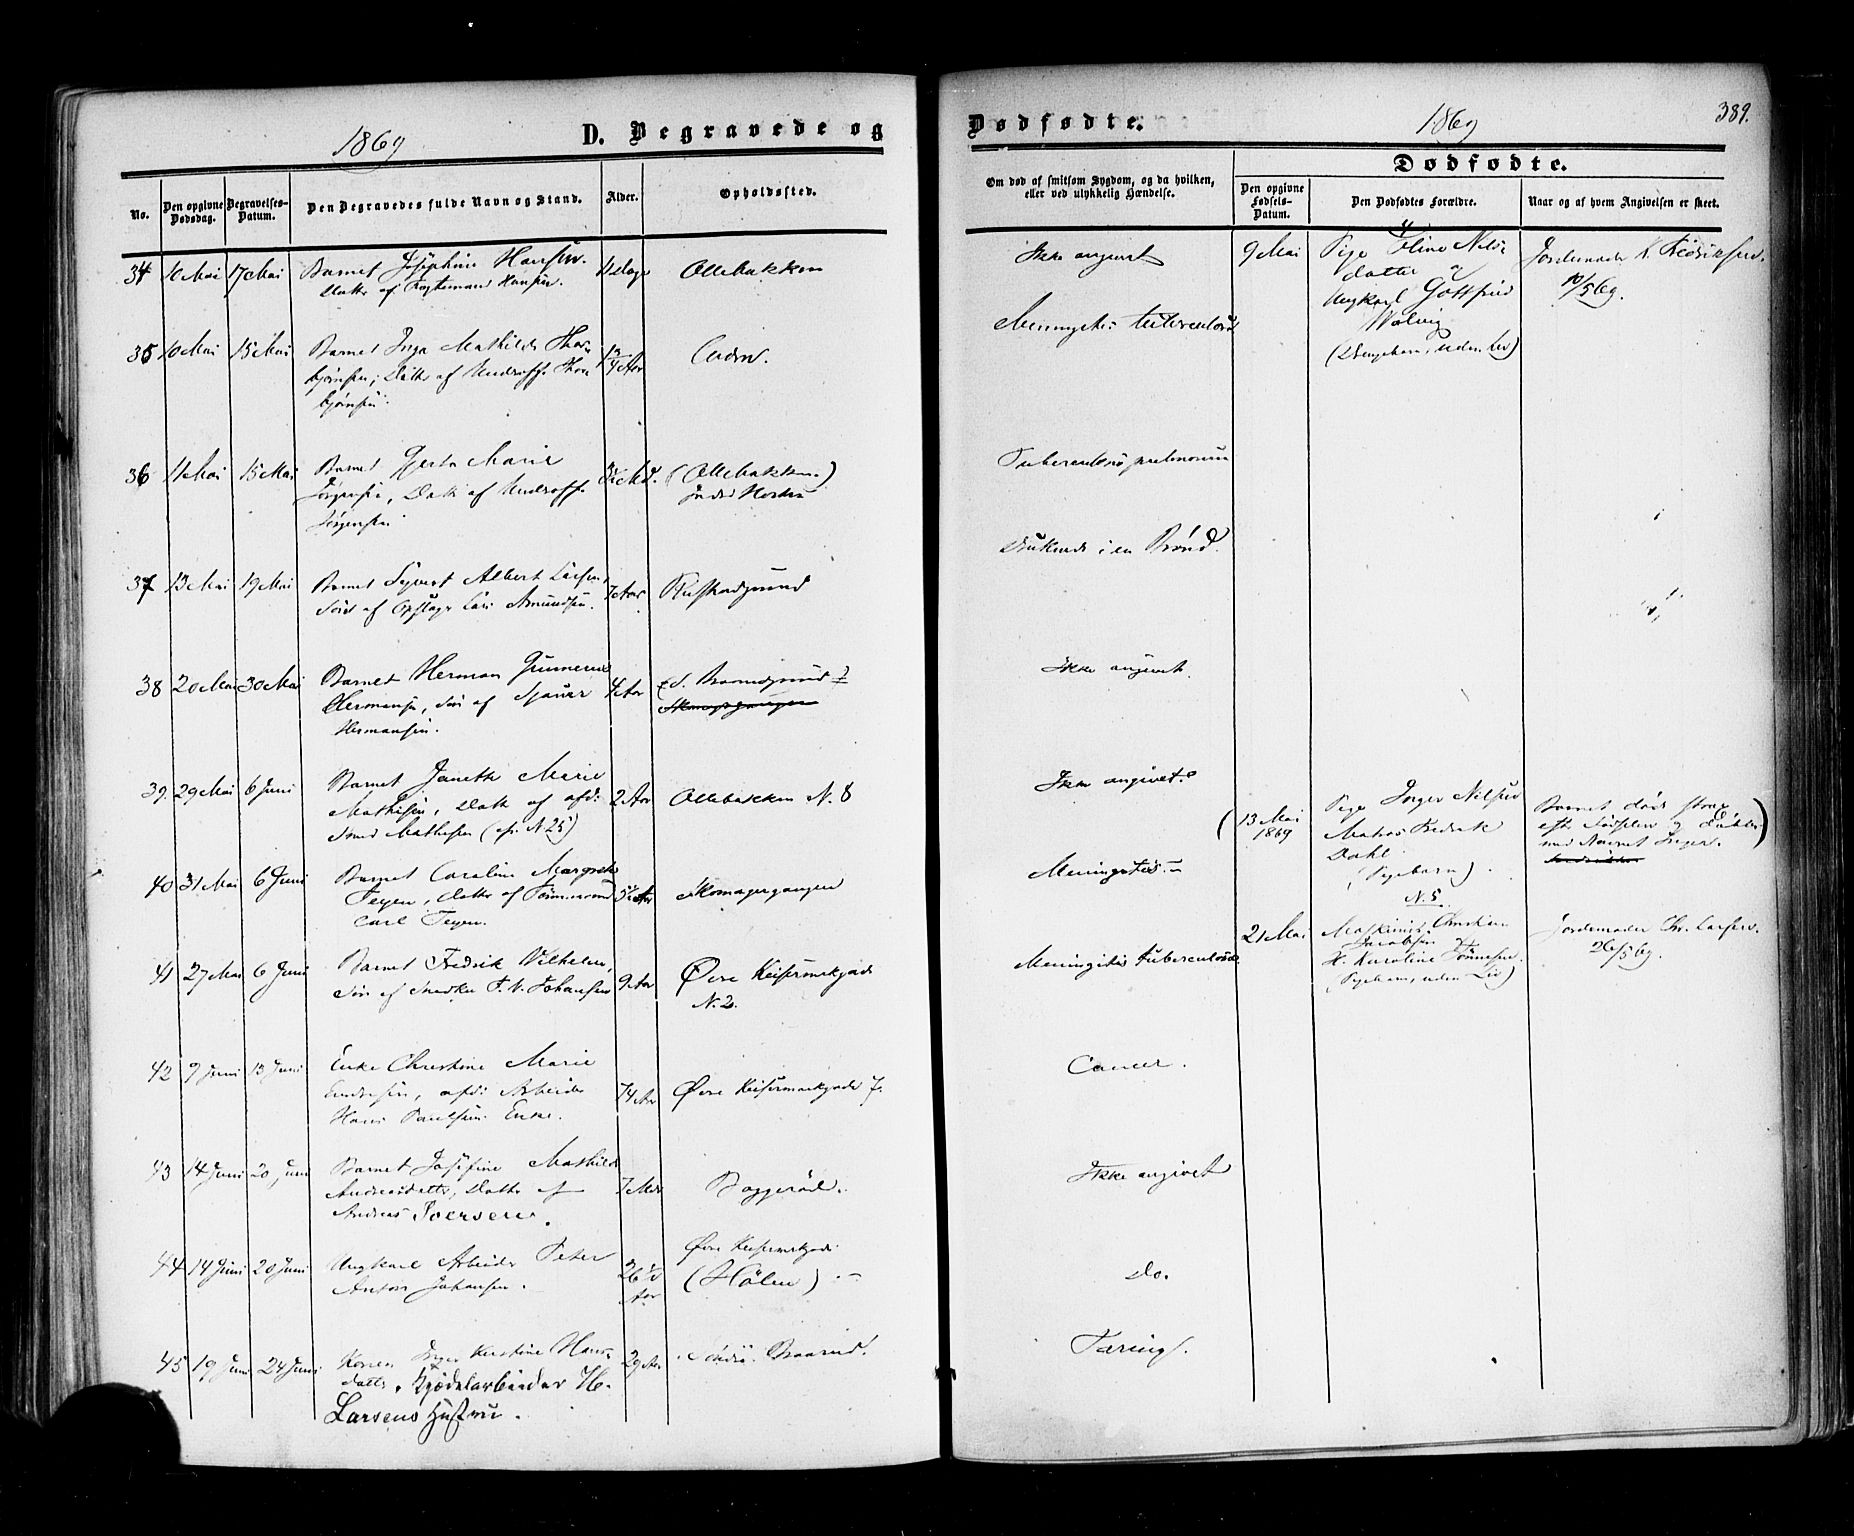 1869
D. Begravede og
No.
Den opgivne Dødsdag.
Begravelses-Datum.
Den Begravedes fulde Navn og Stand.
Alder.
Opholdssted.
34 10 Mai 17 Mai Barnet Josephine Hansen. 11 Dage Ollebakken
Datter af Hansen.
35 10 Mai 15 Mai Barnet Inga Mathilde Thor-
bjørnsen, Datter af Thor-
bjørnsen.
36 11 Mai 15 Mai Barnet Marie (Ollebakken)
Jørgensen, Datter af
Jørgensen.
37 13 Mai 19 Mai Barnet Syvert Albert Larsen, 7 Aar
Søn af Lars Amundsen.
38 20 Mai 30 Mai Barnet Herman Gunnerius 4 Aar
Hermansen, Søn af
Hermansen.
39. 29 Mai 6 Juni Barnet Marie 2 Aar Ollebakken N. 8
Mathisen, Datter af afd:
Mathesen (cfr. N 25)
40 31 Mai 6 Juni Barnet Caroline Margrethe Skomagergangen
Teyen, Datter af Tømmermand
Carl Teyen.
41 27 Mai 6 Juni Barnet Fredrik Vilhelm, 9 Aar Øvre Keisermarkgade
Søn af Snedker F. V. Johansen N. 2.
42 9 Juni 13 Juni Enke Christine Marie
Endresen, afd: Arbeider 74 Aar Øvre Keisermarkgade 7.
Hans Paulsens Enke.
43 14 Juni 20 Juni Barnet Josefine Mathilde
Andreasdatter, Datter af 7 Mdr Boggerød.
Andreas Iversen.
44 14 Juni 20 Juni Ungkarl Arbeider Peter 26½ Aar Øvre Keisermarkgade
Anton Johansen. (Hölen)
45 19 Juni 24 Juni Konen Inger Kirstine Hans- 29 Aar
datter, Bjødelarbeider H.
Larsens Hustru.
Dødfødte.
1869
389.
Dødfødte.
Om død af smitsom Sygdom, og da hvilken,
eller ved ulykkelig Hændelse.
Den opgivne Fødsels-Datum.
Den Dødfødtes Forældre.
Naar og af hvem Angivelsen er skeet.
Ikke angivet 9 Mai Pige Oline Nils- Jordemoder K. Fredriksen.
datter og 10/5 69.
Ungkarl Gottfried
(Drengebarn, uden Liv)
Tuberculosis pulmonum
Druknede i en Brønd.
Ikke angivet.
Ikke angivet.
(13 Mai 1869 Pige Inger Nilsen Barnet døde strax
Matros Fredrik efter Fødselen og døbtes
Dahl med Navnet Inger.)
(Pigebarn).
Meningitis.
N. 5
21 Mai Maskinist Christian Jordemoder Chr. Larsen.
Jacobsen 26/5 69.
H. Karoline Tønnesen.
(Pigebarn, uden Liv)
Meningitis tuberculosa
Cancer.
Ikke angivet
do.
Tæring.